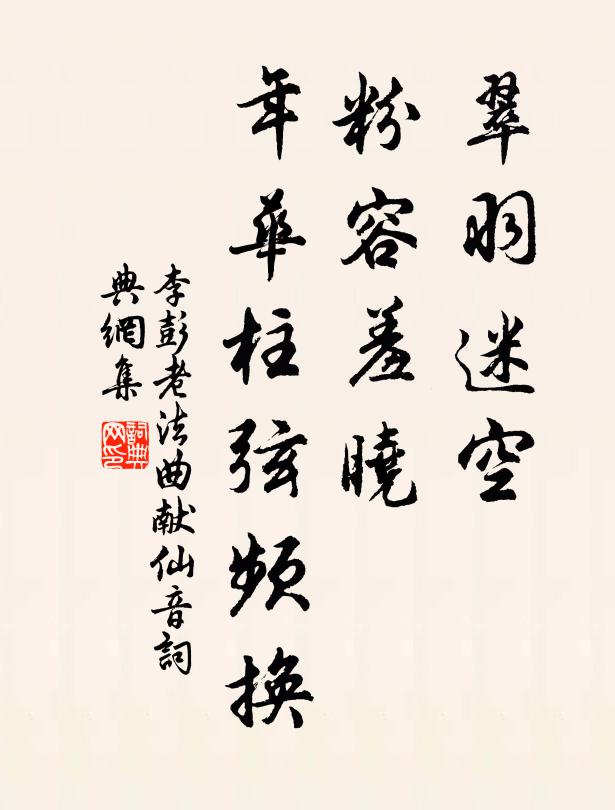 翠羽迷空
粉容羞曉
年華柱弦頻換
李彭老法曲献仙音詞
典網集
詞典網印